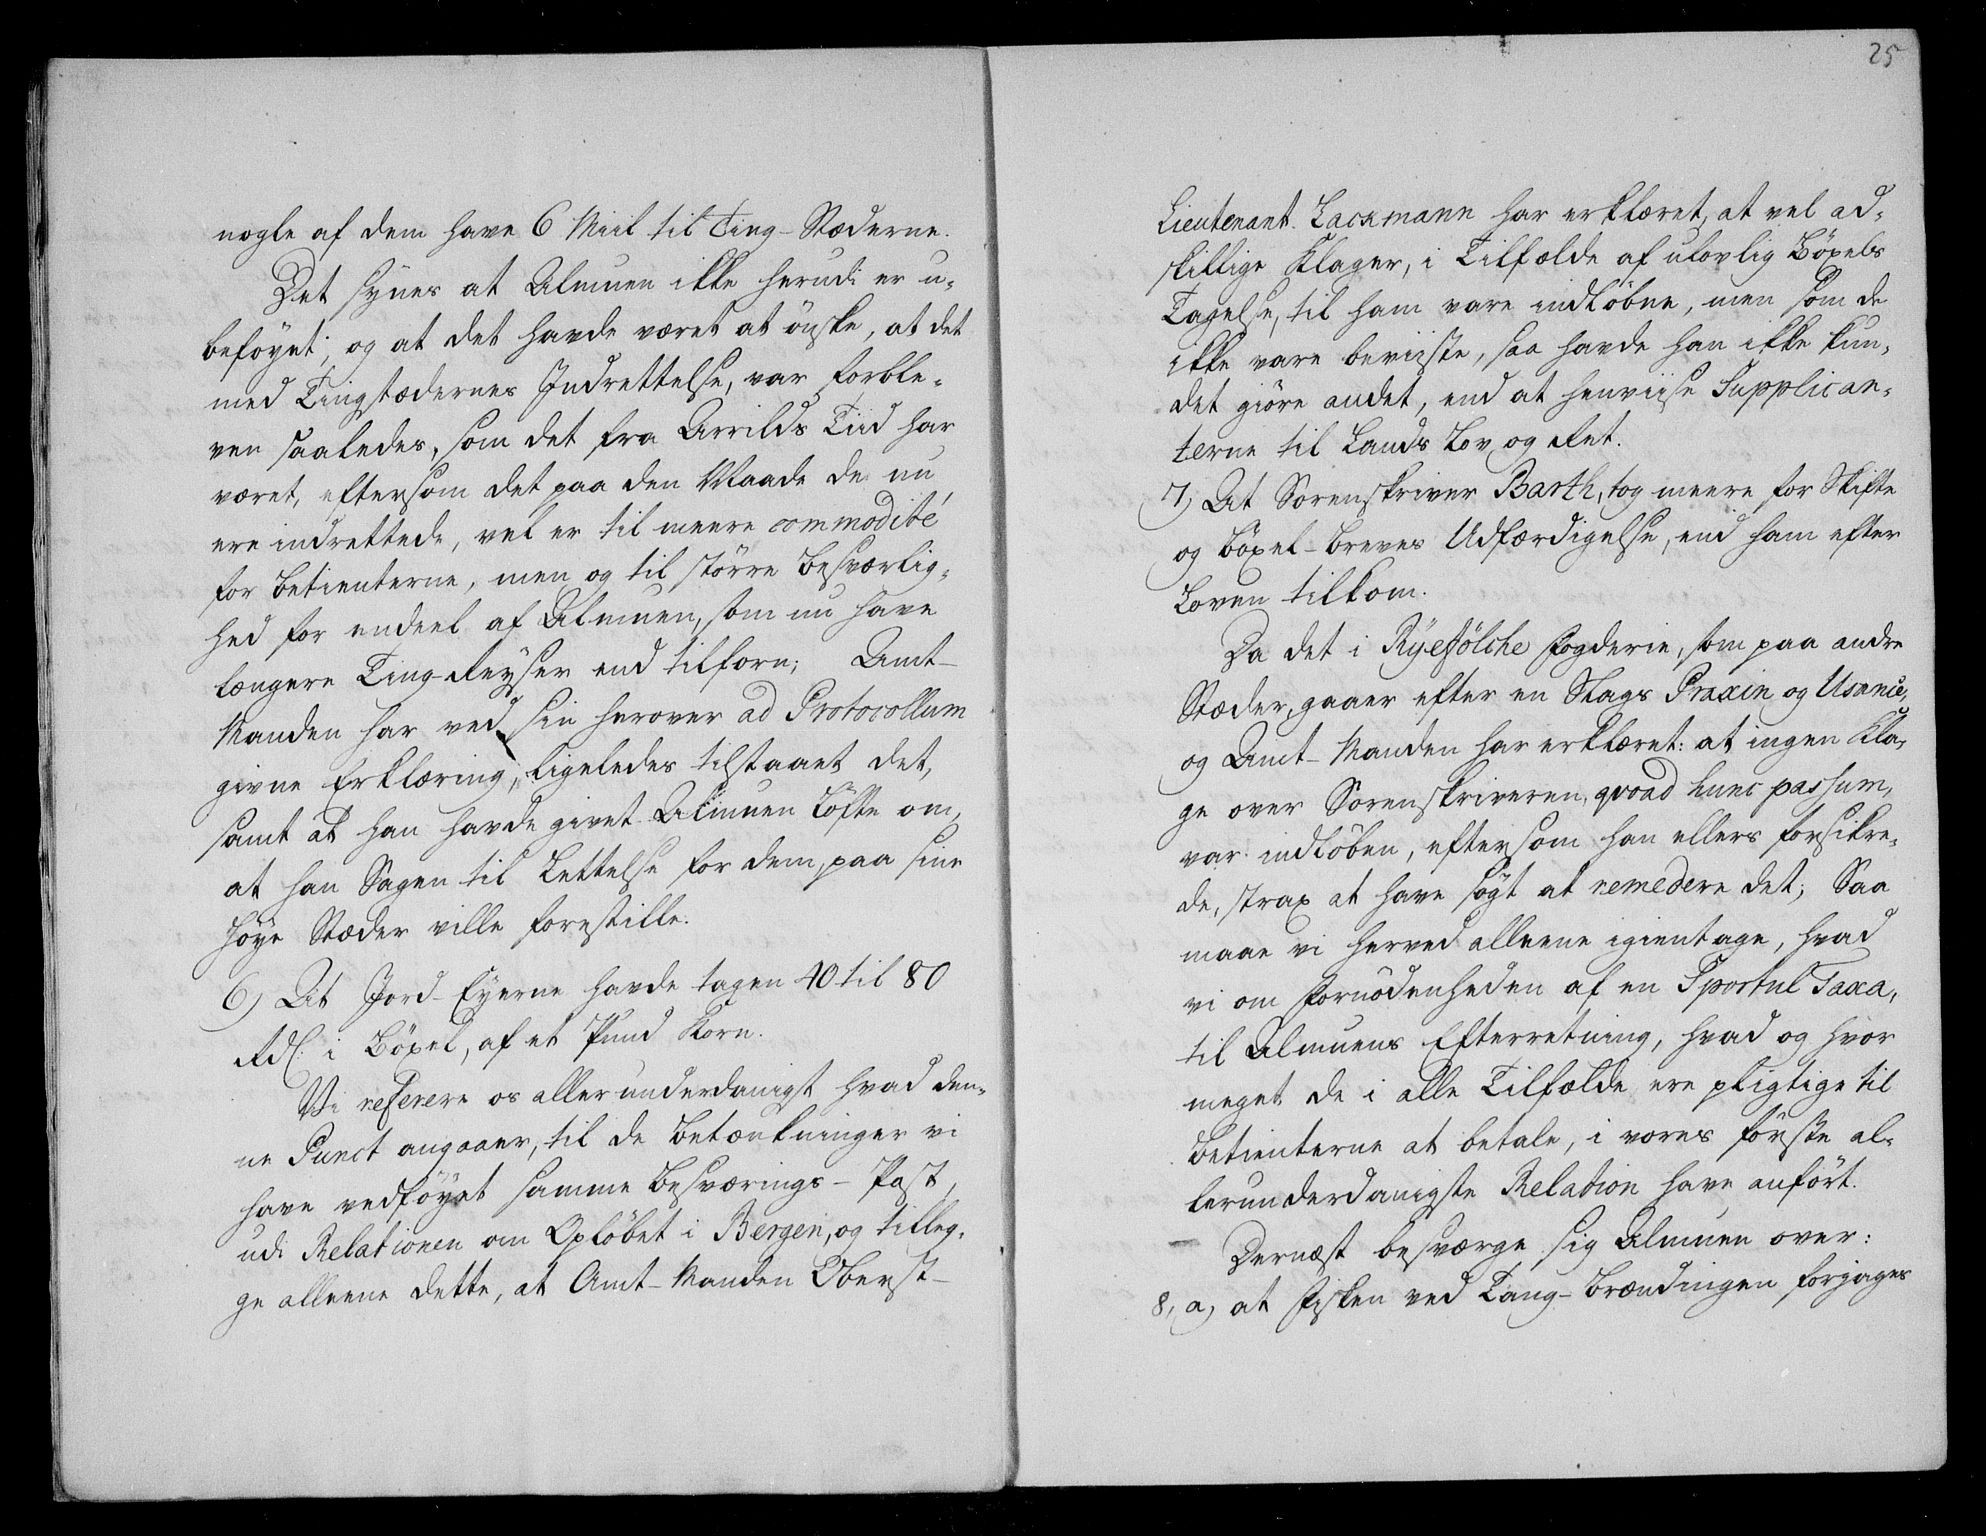 nogle af dem have 6 Miil til Ting-Stæderne.
Det synes at Almuen ikke herudi er u-
beføyet; og at det havde været at önske, at det
med Tingstædernes Indrettelse, var forble-
ven saaledes, som det fra Arrilds Tiid har
været, eftersom det paa den Maade de nu
ere indrettede, vel er til meere commodité
for Betienterne, men og til större Besværlig-
hed for endeel af Almuen, som nu have
længere Ting-Reyser end tilforn; Amt-
Manden har ved sin herover ad Protocollum
givne Erklæring, ligeledes tilstaaet det,
samt at han havde givet Almuen Löfte om,
at han Sagen til Lettelse for dem, paa sine
höye Stæder ville forestille.
6) At Jord-Eyerne havde tagen 40 til 80
Rdl. i Böxel, af et Pund Korn.
Vi referere os allerunderdanigst hvad den-
ne Punct angaaer, til de Betænkninger vi
have vedföyet samme Besværings-Post,
udi Relationen om Oplöbet i Bergen, og tilleg-
ge alleene dette, at Amt-Manden Oberst-
25
Lieutenant Lackmann har erklæret, at vel ad-
skillige Klager, i Tilfælde af ulovlig Böxels
Tagelse, til ham vare indlöbne, men som de
ikke vare beviiste, saa havde han ikke kun-
det giöre andet, end at henviise Supplican-
terne til Lands Lov og Ret.
7) At Sorenskriver Barth, tog meere for Skifte
og Böxel-Breves Udfærdigelse, end ham efter
Loven tilkom.
Da det i Ryefölche Fogderie, som paa andre
Stæder, gaaer efter en Slags Praxin og Usance,
og Amt-Manden har erklæret: at ingen Kla-
ge over Sorenskriveren, qvoad hunc passum,
var indlöben, eftersom han ellers forsikre-
de, strax at have sögt at remedere det; Saa
maae vi herved alleene igientage, hvad
vi om Fornödenheden af en Sportul Taxa,
til Almuens Efterretning, hvad og hvor
meget de i alle Tilfælde ere pligtige til
Betienterne at betale, i vores förste al-
lerunderdanigste Relation have anfört.
Dernæst besværge sig Almuen over:
8, a, at Fisken ved Tang-Brændingen forjages